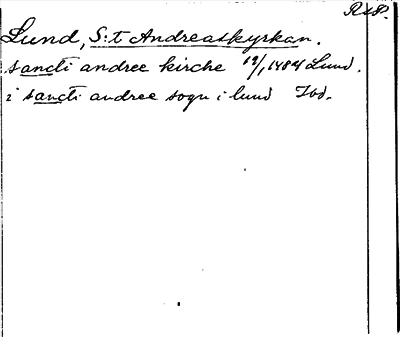 R&P.
Lund, S:t Andreaskyrkan.
sancti andree kirche 19/1 1484 Lund.
i sancti andree sogn i lund Ibd.